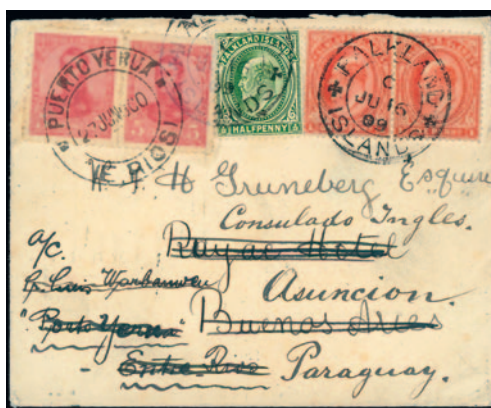 PUERTO YERUA
(E. RIOS)
5 5
FALKLAND ISLANDS
HALFPENNY
FALKLAND ISLANDS
C
JU 16
09
H Gruneberg Esquire
Consulado Ingles.
a/c.
Hotel
Luis
Asuncion.
"Porto Yerua"
Buenos Aires
Entre Rios
Paraguay.